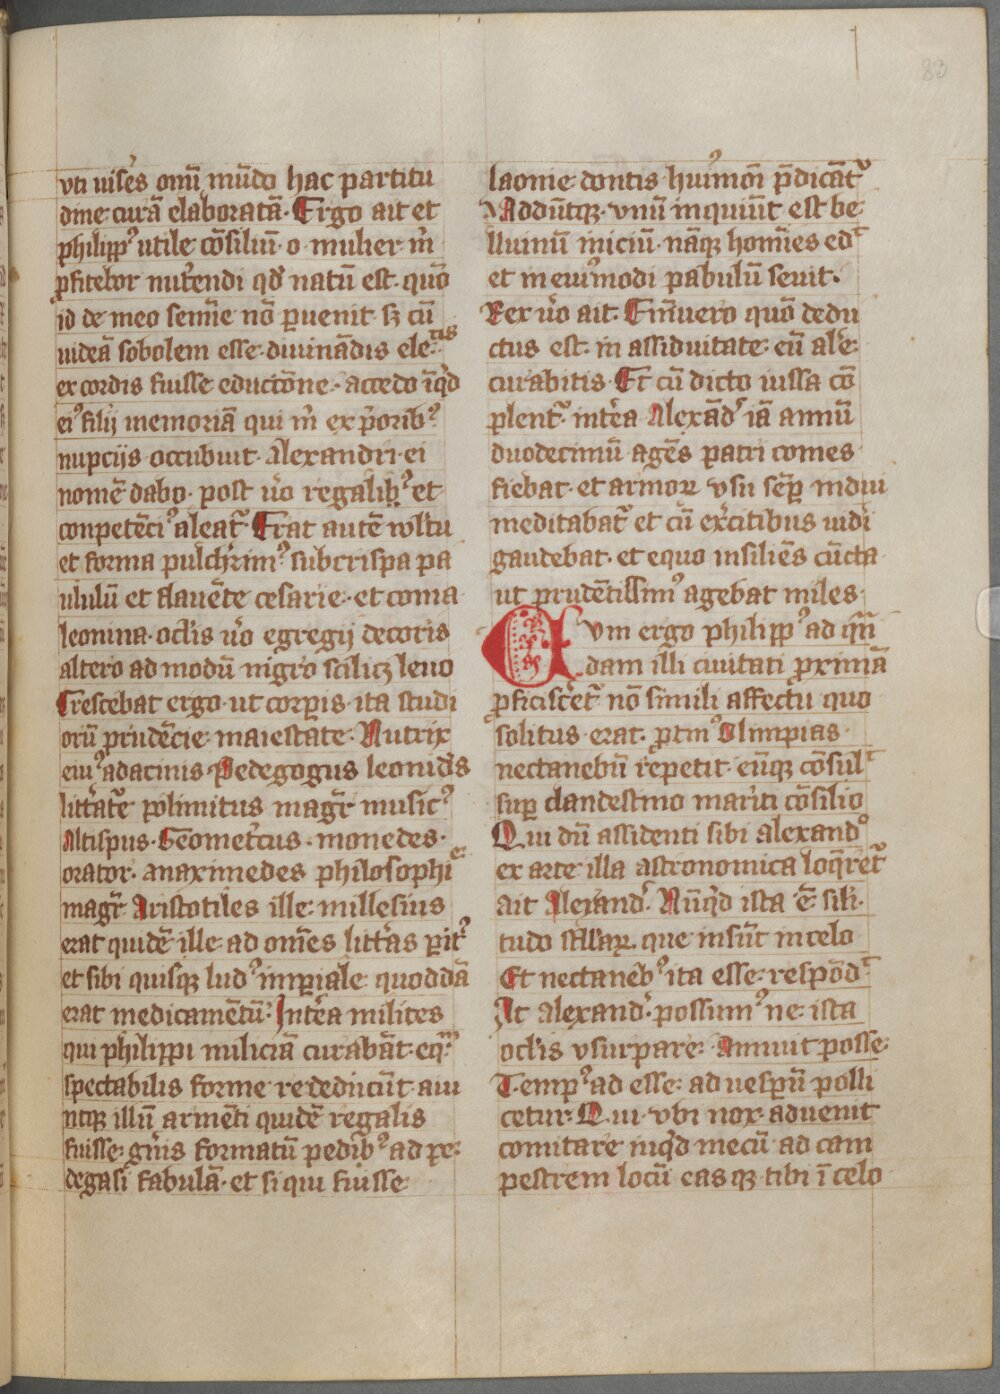 83
vti uiſēs omī mūdo hac partitu
dine curā elaboratā. Ergo ait et
philipp᾽ utile cōſiliū o mulier m̄
ꝓfitebor nut͛endi qd̄ natū est. quō
id de meo ſemīe nō ꝑuenit ſꝫ cū
uideā ſobolem eſſe diuinādis ele.ctis
ex cordis fuiſſe eductōne. accedo īqd̄
ei᾽ filij memoriā qui m̄ ex p̄orib᾽
nupcijs occubuit. Alexandri ei
nomē dabo. poſt ūo regalib᾽ et
conpetēci᾽ aleat͛. Erat autē wltu
et forma pulch͛rim᾽ ſubcriſpa pa
ululū et flauēte ceſarie. et coma
leonina. oclis ūo egregij decoris
altero ad modū nigro ſcilicꝫ leuo
Creſcebat ergo ut corꝑis ita ſtudi
orū prudēcie maieſtate. Nutrix
eiu᾽ adacinis Pedegogus leonid͛s
litt͛at͛e polimitus mag͛r muſic᾽
Altiſpus. Geomet͛cus. monedes.
orator. anaximedes philoſophie
mag͛r Ariſtotiles ille mileſius
erat quidē ille ad om̄es litt͛as ꝑit᾽
et ſibi quiſqꝫ lud᾽ inꝑiale quoddā
erat medicamētū. Int͛ea milites
qui philippi miliciā curabāt. eqm̄
ſpectabilis forme re dedūcūt aui
ntqꝫ illū armēti quidē regalis
fuiſſe. gn̄is formatū pedib᾽ ad pe
degaſi fabulā. et ſi qui fuiſſe
laonie dontis hui᾽moī p̄dicāt᾽
Addūtqꝫ. vnū inquiūt eſt be
lluinū iniciū. nāqꝫ homīes ed͛
et in eiu᾽modi pabulū ſeuit.
Rex ūo ait. Em̄uero quō dedu
ctus eſt. in aſſiduitate. eū al͛e
curabitis. Et cū dicto iuſſa cō
plent͛. int͛ea Alexād͛ iā annū
duodecimū agēs patri comes
fiebat. et armoꝝ vſu ſēꝑ indui
meditabat͛ et cū ex͛citibus uid͛i
gaudebat. et equo inſiliēs cūcta
ut prudētiſſim᾽ agebat miles
Cvm ergo philipp᾽ ad qn̄
dam illi ciuitati ꝓximā
ꝓficiſc͛et͛ nō ſimili affectu quo
ſolitus erat. ꝓtin᾽ Olimpias
nectanebū repetit. eūqꝫ cōſul͛
ſuꝑ clandeſtino mariti cōſilio
Qui dū aſſidenti ſibi alexand᾽
ex arte illa aſtronomica loq͛ret͛
ait Alexand͛. Nūqd̄ iſta ē ſili
tudo ſtellaꝝ. que inſūt in celo
Et nectaneb᾽ ita eſſe. reſpōd͛
At alexand͛. poſſum᾽ ne iſta
oclis vſurpare. Annuit poſſe.
Temp᾽ ad eſſe. ad ueſꝑū polli
cetur. Qui vbi nox aduenit
comitare inqd̄ mecū ad cam
peſtrem locū eas qꝫ tibi ī celo